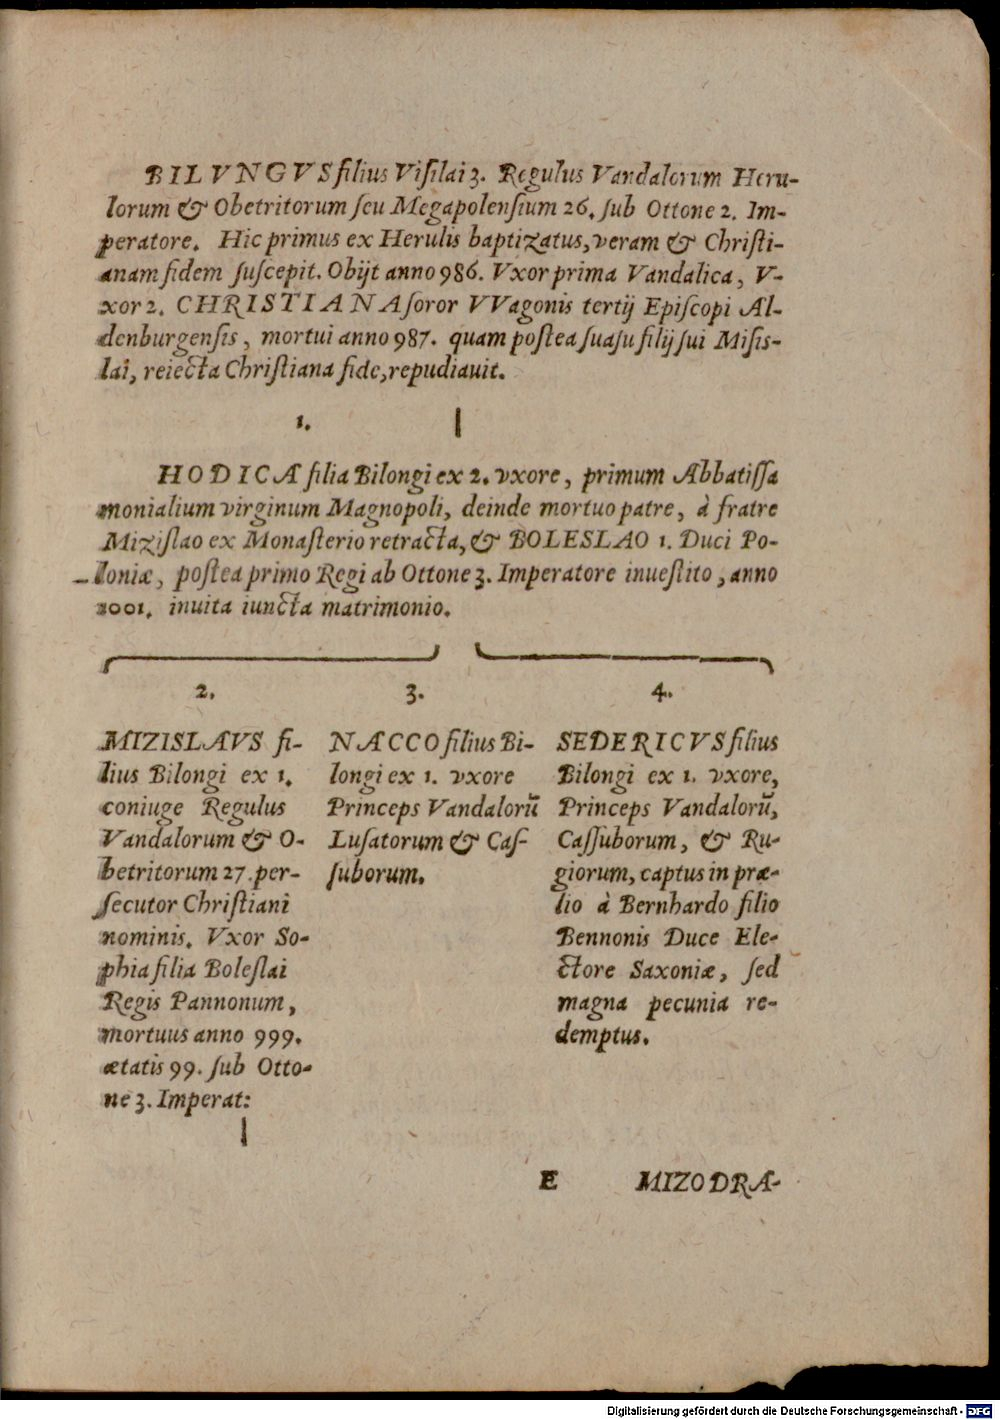 BILVNGVS filius Visilai 3. Regulus Vandalorum Heru-
lorum & Obetritorum seu Megapolensium 26. sub Ottone 2. Im-
peratore. Hic primus ex Herulis baptizatus, veram & Christi-
anam fidem suscepit. Obijt anno 986. Vxor prima Vandalica, V-
xor 2. CHRISTIANA soror VVagonis tertij Episcopi Al-
denburgensis, mortui anno 987. quam postea suasu filij sui Misis-
lai, reiecta Christiana fide, repudiauit.
1.
HODICA filia Bilongi ex 2. vxore, primum Abbatissa
monialium virginum Magnopoli, deinde mortuo patre, à fratre
Mizislao ex Monasterio retracta, & BOLESLAO 1. Duci Po-
loniæ, postea primo Regi ab Ottone 3. Imperatore inuestito, anno
1001. inuita iuncta matrimonio.
2.
MIZISLAVS fi-
lius Bilongi ex 1.
coniuge Regulus
Vandalorum & O-
betritorum 27. per-
secutor Christiani
nominis. Vxor So-
phia filia Boleslai
Regis Pannonum,
mortuus anno 999.
ætatis 99. sub Otto-
ne 3. Imperat:
3.
NACCO filius Bi-
longi ex 1. vxore
Princeps Vandalorũ
Lusatorum & Cas-
suborum.
4.
SEDERICVS filius
Bilongi ex 1. vxore,
Princeps Vandalorũ,
Cassuborum, & Ru-
giorum, captus in præ-
lio à Bernhardo filio
Bennonis Duce Ele-
ctore Saxoniæ, sed
magna pecunia re-
demptus.
E MIZODRA-
Digitalisierung gefördert durch die Deutsche Forschungsgemeinschaft - DFG